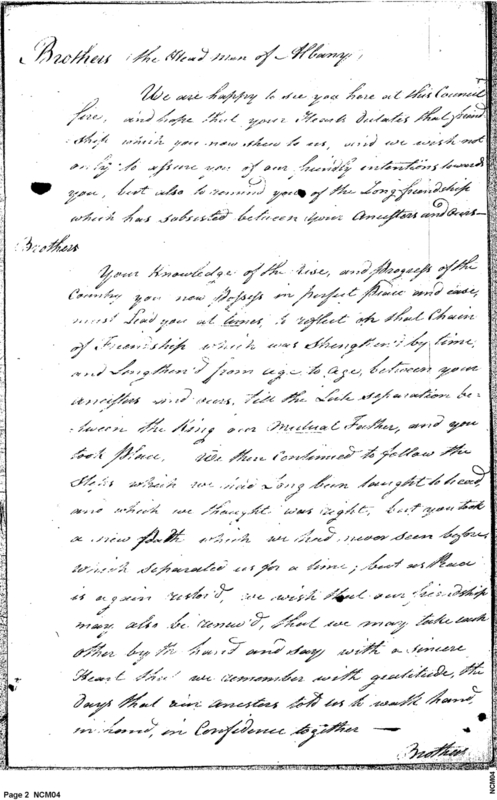 Brothers the Head men of Albany,
We are happy to see you here at this Council
fire, and hope that your Heart Dictates that friend
ship which you now shew to us, and we wish not
only to assure you of our friendly intentions towards
you, but also to remind you of the Long friendship
which has subsisted between your Ancestors and ours—
Brothers
Your Knowledge of the rise, and progress of the
Country you now Possess in perfect Peace and ease,
must Lead you at times, to reflect on that Chain
of Friendship which was strengthen'd by time,
and Lengthen'd from age to age, between your
ancesters and ours, till the Late separation be-
tween the King our mutual Father, and you
took place. We then continued to follow the
Steps which we had Long been taught to tread,
and which we thought was right, but you took
a new Path which we had never seen before,
which separated us for a time; but as Peace
is again restor'd, we wish that our friendship
may also be renew'd, that we may take each
other by th hand and say with a sincere
Heart that we remember with gratitude, the
Days that our ancestors told us to walk hand,
in hand, in Confidence together —
Brothers
Page 2 NCM04
NCM04